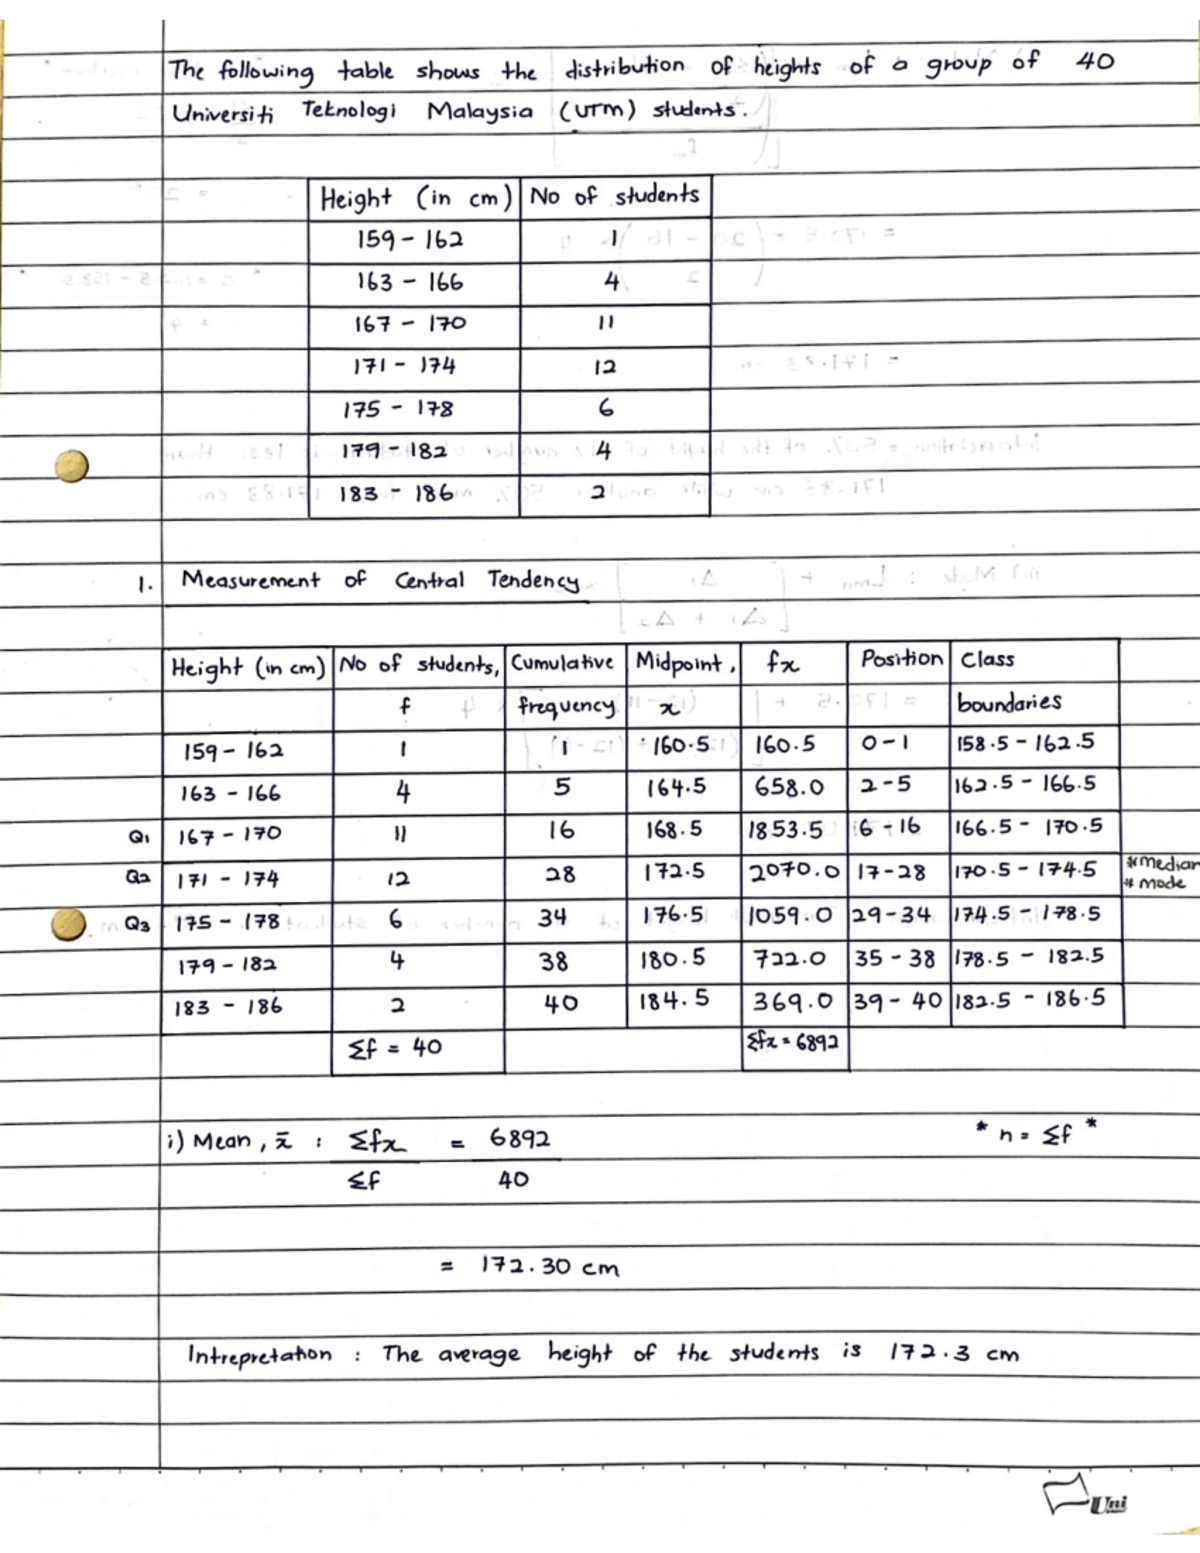 The following table shows the distribution of heights of a group of 40
Universiti Teknologi Malaysia (UTM) students.
Height (in cm) No of students
159 - 162 1
163 - 166 4
167 - 170 11
171 - 174 12
175 - 178 6
179 - 182 4
183 - 186 2
1. Measurement of Central Tendency
Height (in cm) No of students, Cumulative Midpoint, fx Position Class
f frequency x boundaries
159 - 162 1 1 160.5 160.5 0-1 158.5 - 162.5
163 - 166 4 5 164.5 658.0 2-5 162.5 - 166.5
Q1 167 - 170 11 16 168.5 1853.5 6-16 166.5 - 170.5
Q2 171 - 174 12 28 172.5 2070.0 17-28 170.5 - 174.5 *median
* mode
Q3 175 - 178 6 34 176.5 1059.0 29-34 174.5 - 178.5
179 - 182 4 38 180.5 722.0 35 - 38 178.5 - 182.5
183 - 186 2 40 184.5 369.0 39 - 40 182.5 - 186.5
Σf = 40 Σfx = 6892
i) Mean, x̄ : Σfx = 6892 * n = Σf *
Σf 40
= 172.30 cm
Intrepretation : The average height of the students is 172.3 cm
Uni